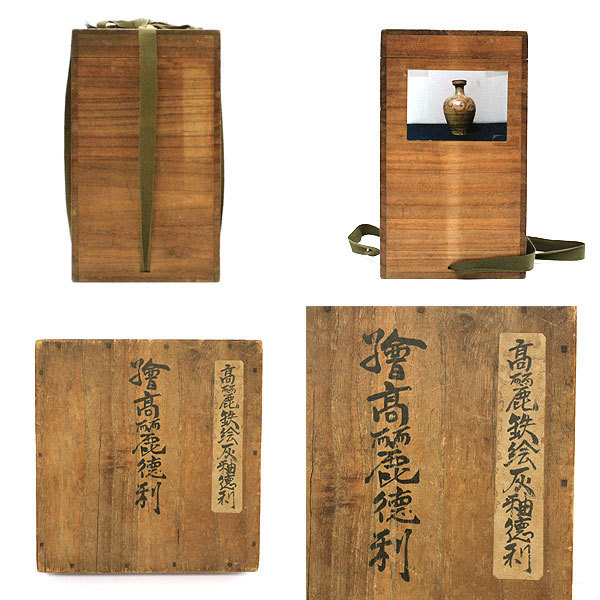 高麗鉄絵灰釉徳利
繪高麗德利
高麗鉄絵灰釉徳利
繪高麗德利